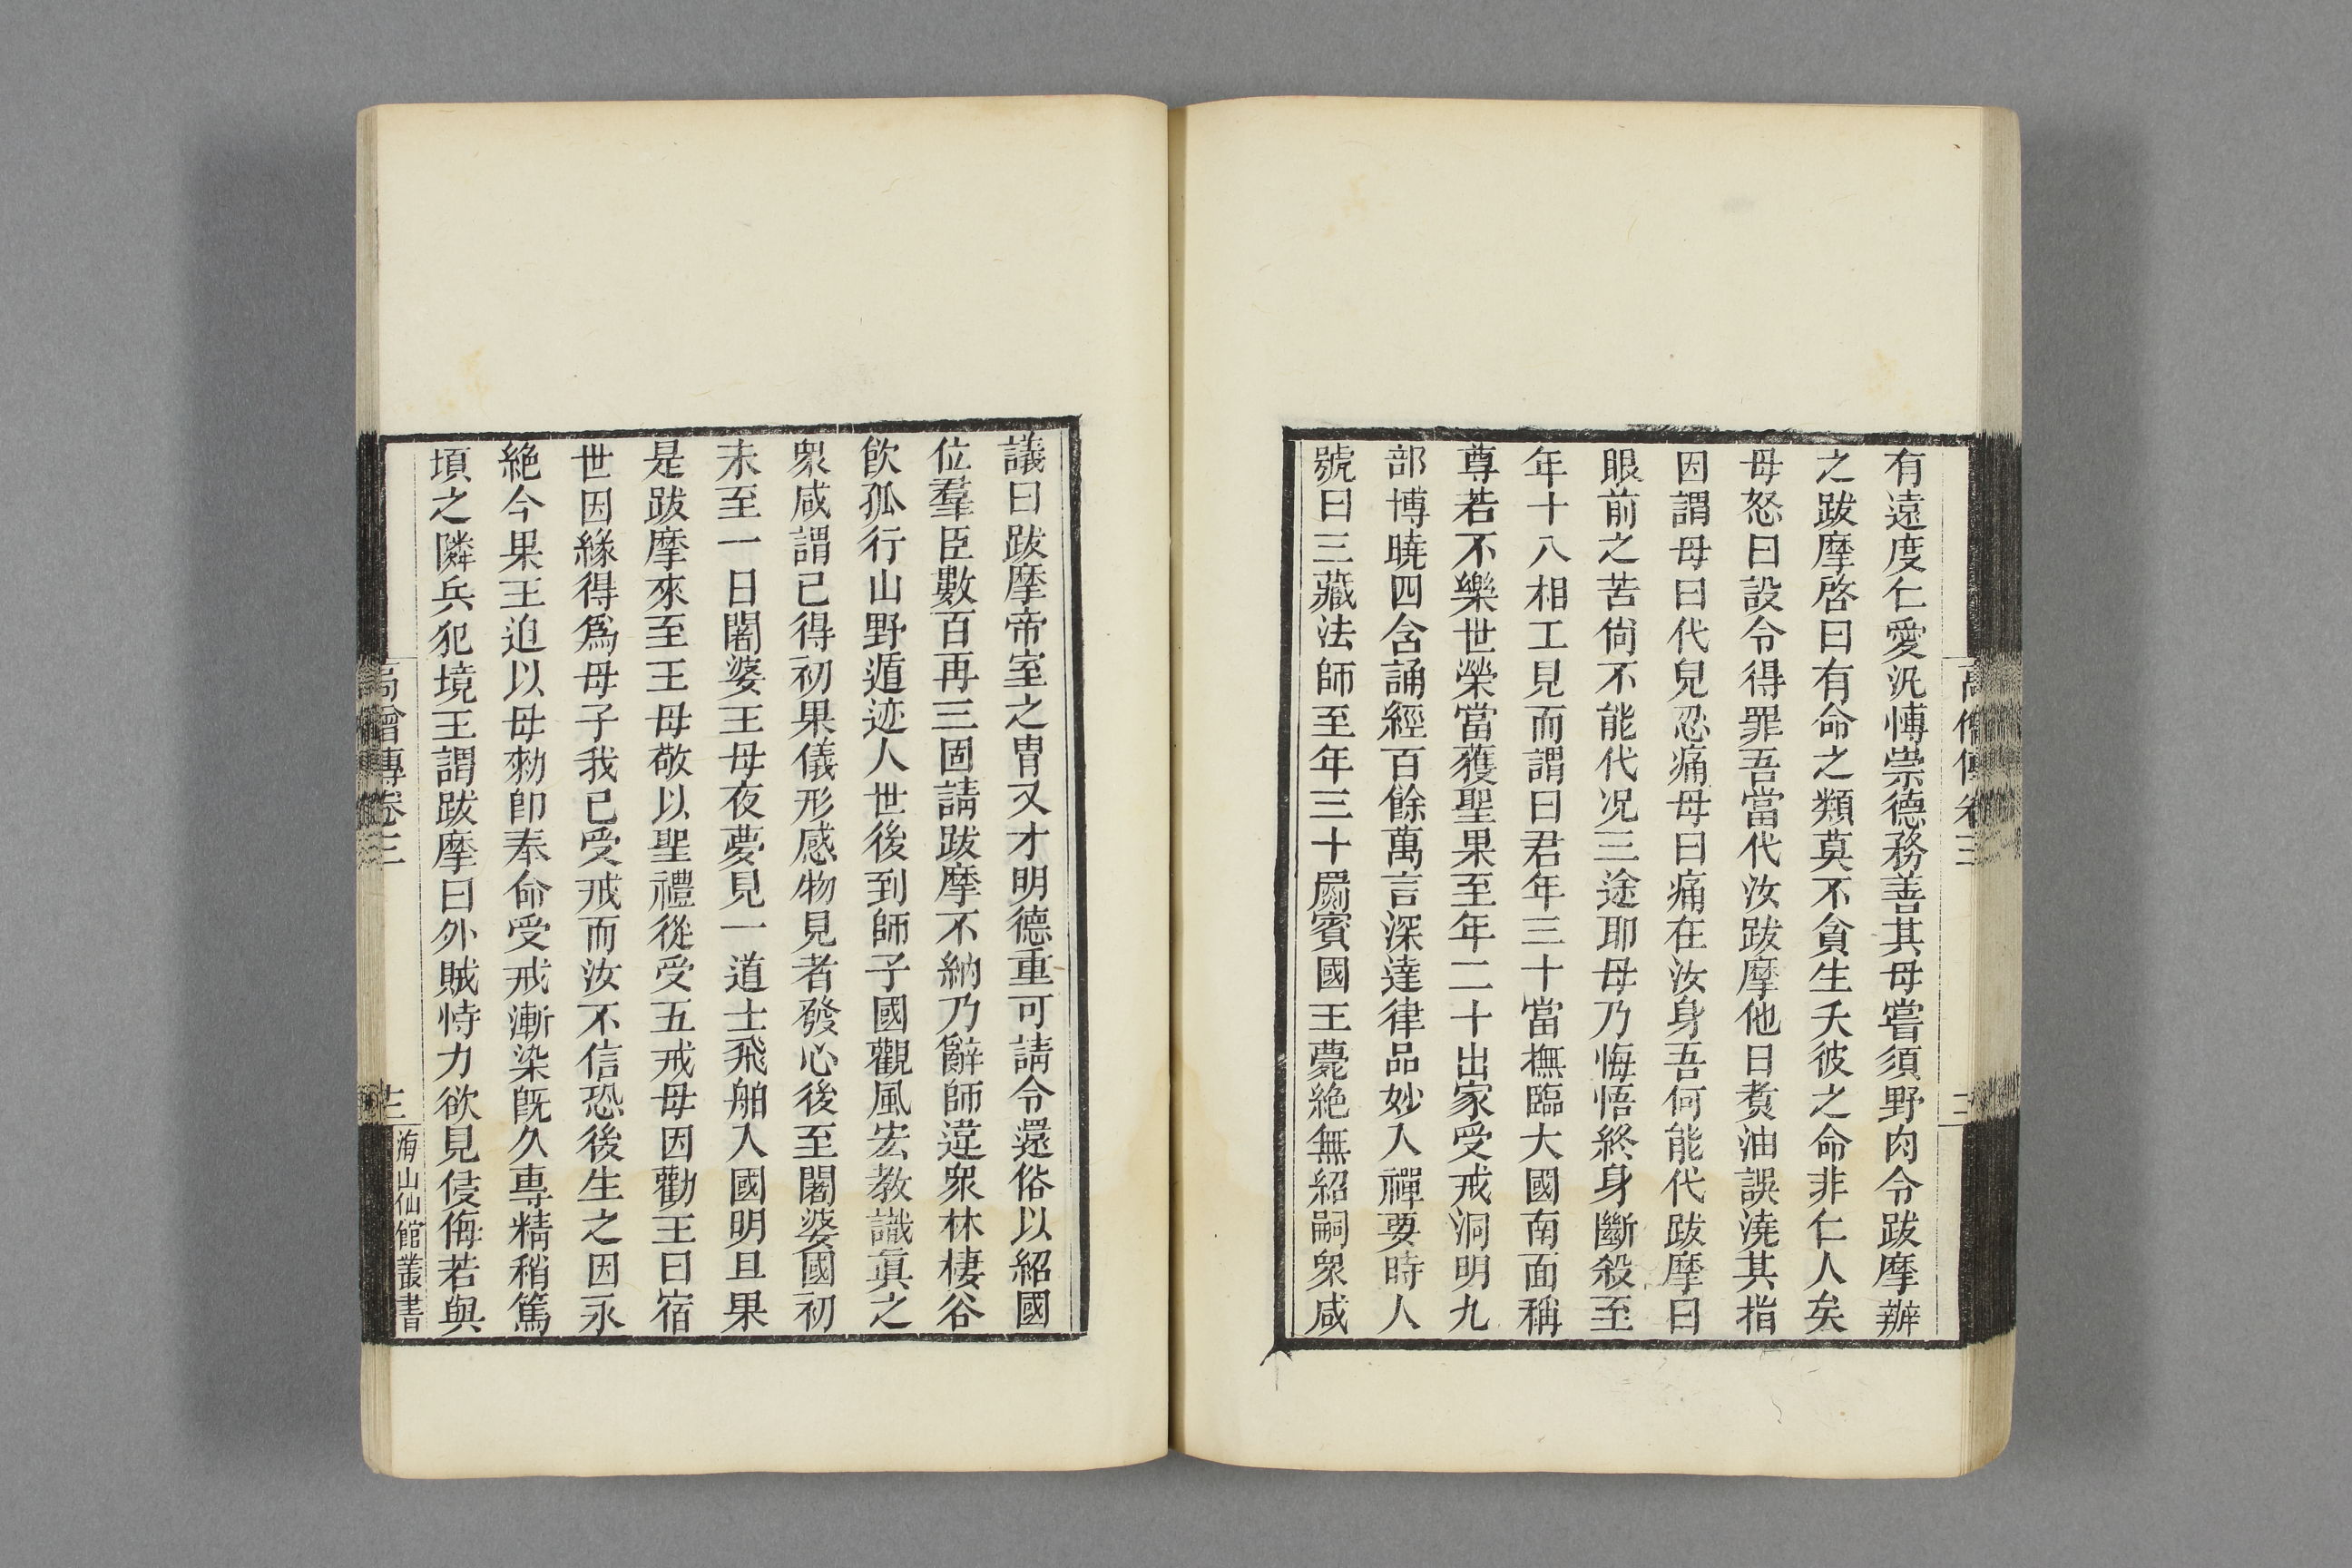 高僧傳卷三
有遠度仁愛汎愽崇德務善其母嘗須野肉令跋摩辦
之跋摩啓曰有命之類莫不貪生夭彼之命非仁人矣
母怒曰設令得罪吾當代汝跋摩他日煑油誤澆其指
因謂母曰代兒忍痛母曰痛在汝身吾何能代跋摩曰
眼前之苦尙不能代况三途耶母乃悔悟終身斷殺至
年十八相工見而謂曰君年三十當撫臨大國南面稱
尊若不樂世榮當獲聖果至年二十出家受戒洞明九
部博曉四含誦經百餘萬言深達律品妙入禪要時人
號曰三藏法師至年三十罽賓國王薨絶無紹嗣衆咸
議曰跋摩帝室之胄又才明德重可請令還俗以紹國
位羣臣數百再三固請跋摩不納乃辭師違衆林棲谷
飮孤行山野遁迹人世後到師子國觀風宏教識眞之
衆咸謂已得初果儀形感物見者發心後至闍婆國初
未至一日闍婆王母夜夢見一道士飛舶入國明旦果
是跋摩來至王母敬以聖禮從受五戒母因勸王曰宿
世因緣得爲母子我已受戒而汝不信恐後生之因永
絶今果王迫以母勑卽奉命受戒漸染旣久專精稍篤
頃之隣兵犯境王謂跋摩曰外賊恃力欲見侵侮若與
高僧傳卷三
海山仙館叢書